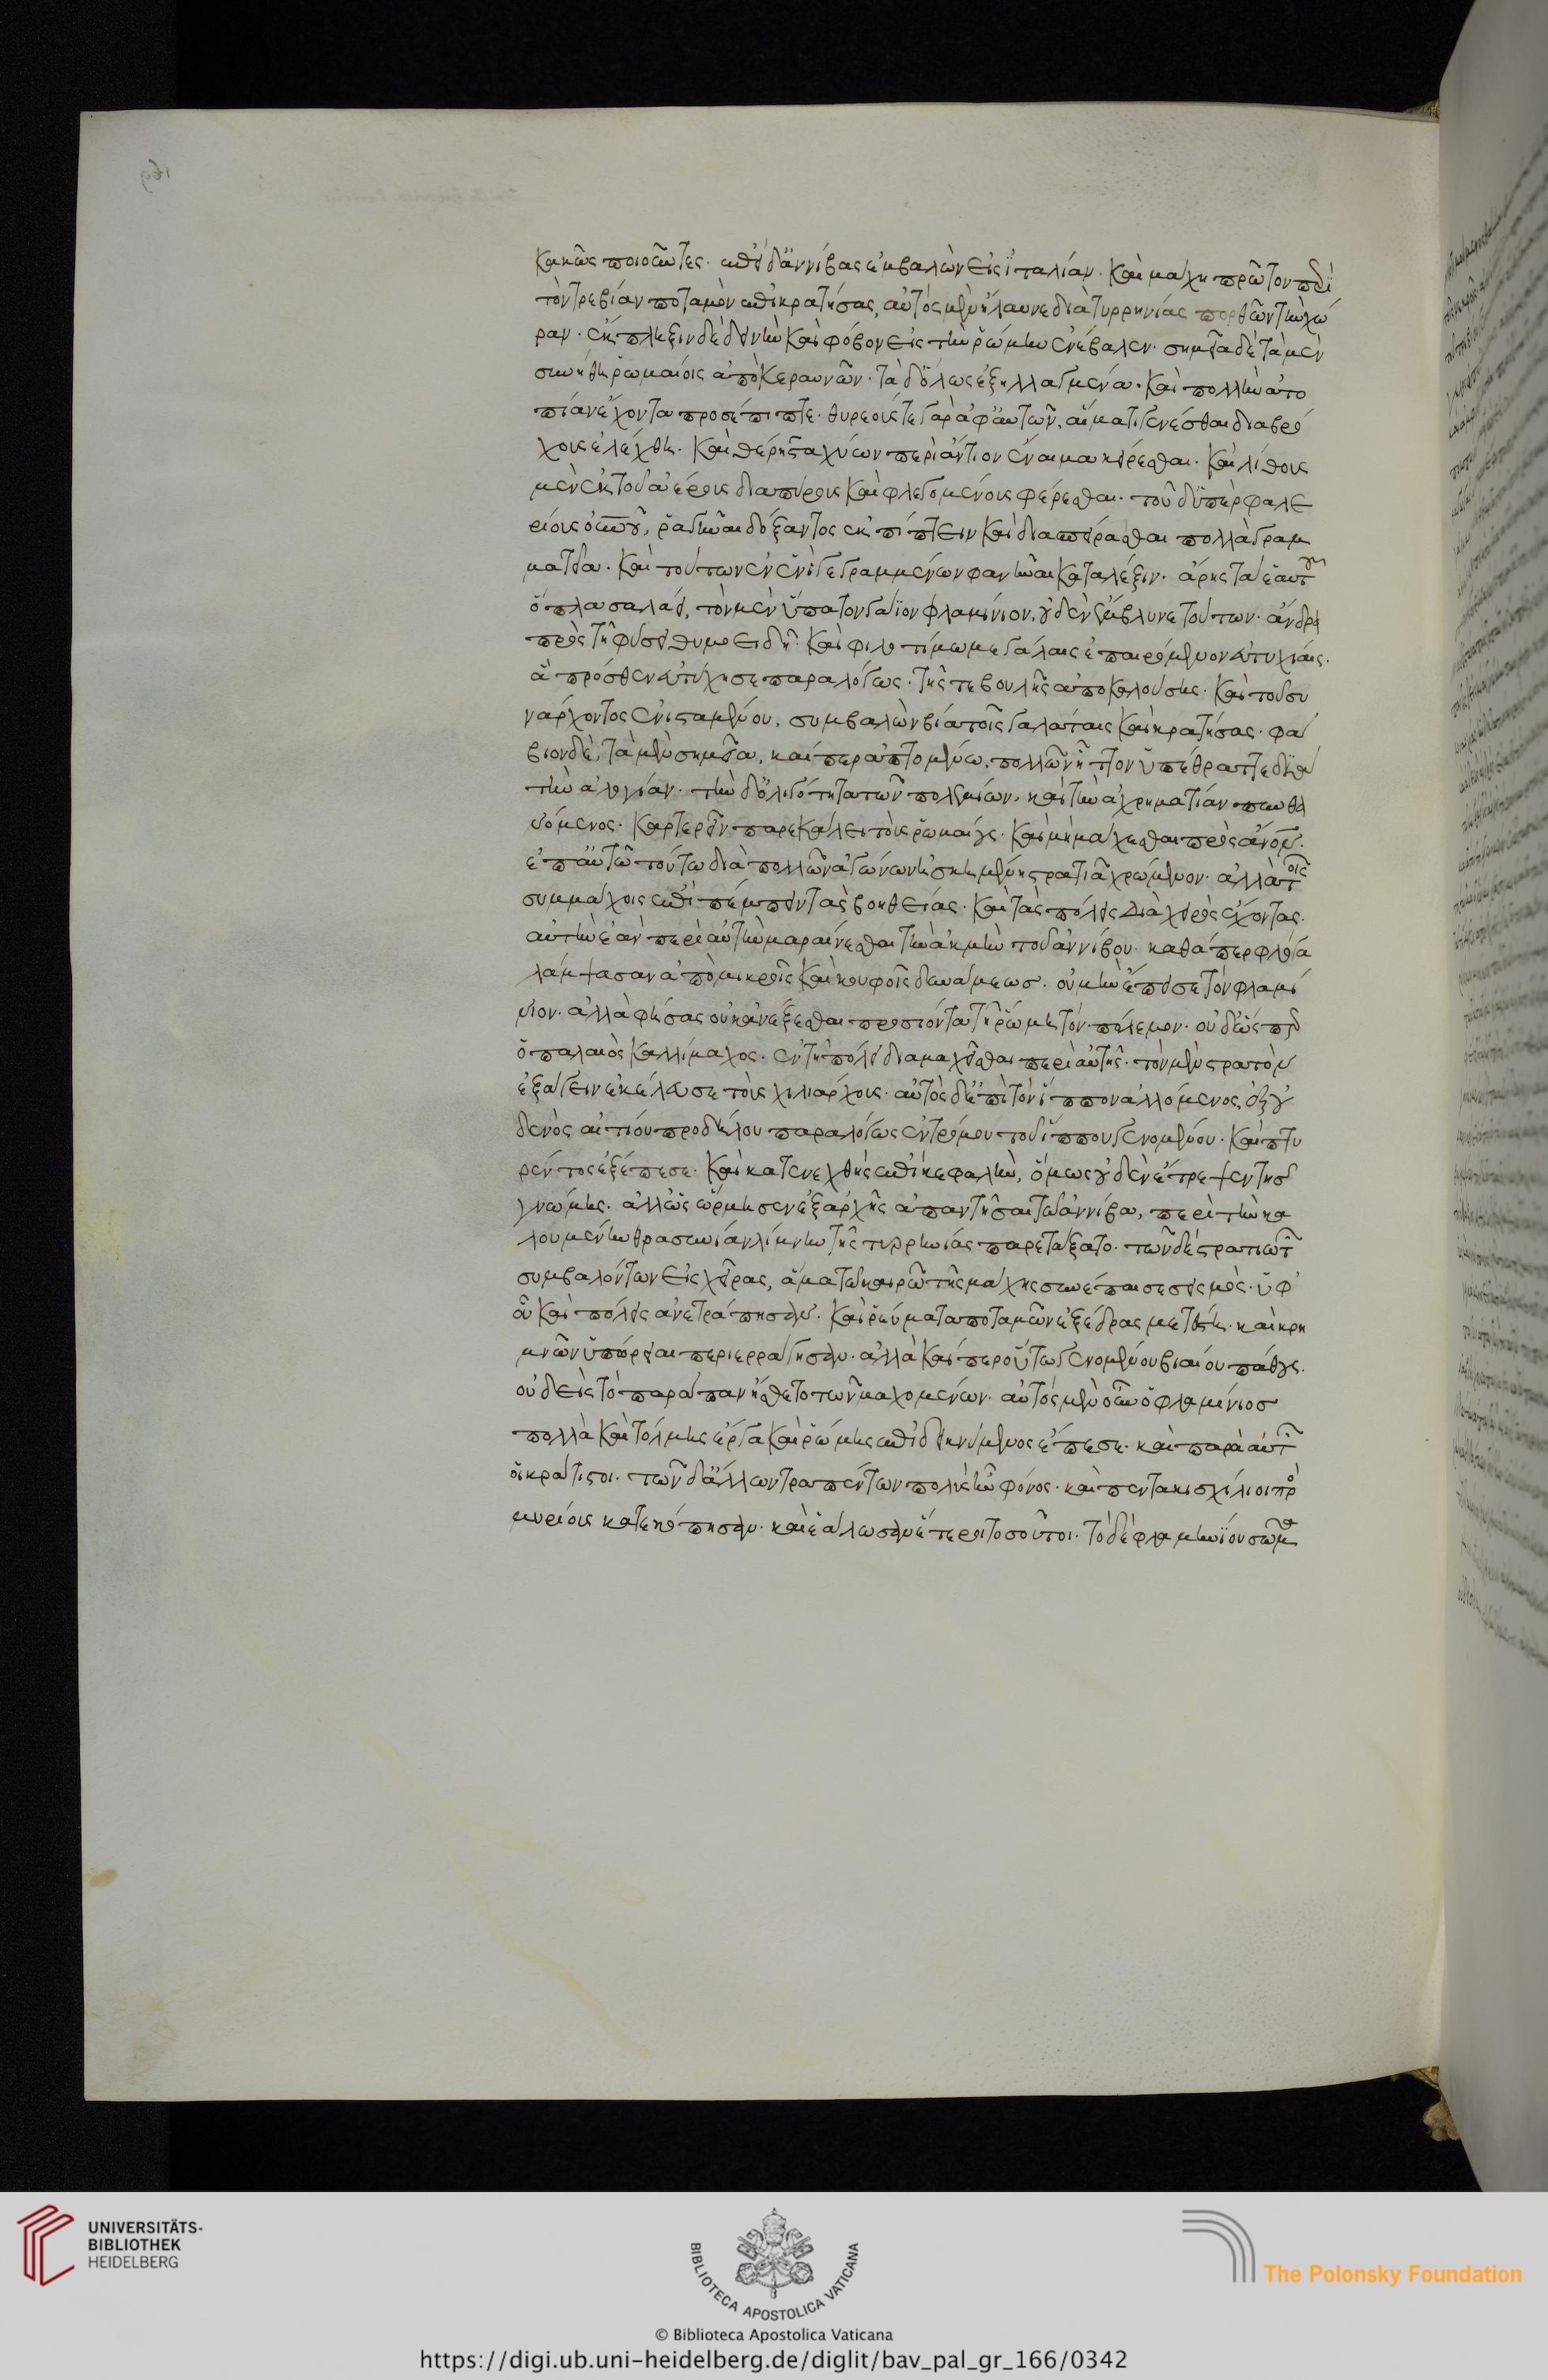 κακῶς ποιοῦντες. ἐπεὶ δ' ἀννίβας ἐμβαλὼν εἰς ἰταλίαν. καὶ μάχη πρῶτον περὶ
τὸν τρεβίαν ποταμὸν ἐπικρατήσας, αὐτὸς μὲν ἤλαυνε διὰ τυρρηνίας πορθῶν τὴν χώ
ραν. ἔκπληξιν δὲ δεινὴν καὶ φόβον εἰς τὴν ῥώμην ἐνέβαλεν. σημεῖα δὲ τὰ μὲν
συνήθη ῥωμαίοις ἀπὸ κεραυνῶν. τὰ δ' ὅλως ἐξηλλαγμένα. καὶ πολλὴν ἀτο
πίαν ἔχοντα προσέπιπτε. θυρεούς τε γὰρ ἀφ' αὑτῶν, αἵματι γενέσθαι διαβρό
χους ἐλέχθη. καὶ θέρη σταχύων περὶ ἄντιον ἔναιμα κείρεσθαι. καὶ λίθους
μὲν ἐκ τοῦ ἀέρος διαπύρους καὶ φλεγομένους φέρεσθαι. τοῦ δ' ὑπὲρ φαλε
ρίους οὐρανοῦ, ῥαγῆναι δόξαντος ἐκπίπτειν καὶ διασπείρεσθαι πολλὰ γραμ
ματεῖα. καὶ τούτων ἐν ἑνὶ γεγραμμένον φανῆναι κατὰ λέξιν. ἄρης τὰ ἑαυτοῦ
ὅπλα σαλεύει, τὸν μὲν ὕπατον γάϊον φλαμίνιον, οὐδὲν ἤμβλυνε τούτων. ἄνδρα
πρὸς τῇ φύσει θυμοειδῆ καὶ φιλοτίμω μεγάλαις ἐπαιρόμενον εὐτυχίαις.
ἃ πρόσθεν εὐτύχησε παραλόγως. τῆς τε βουλῆς ἀποκαλούσης. καὶ τοῦ συ
νάρχοντος ἐνισταμένου, συμβαλὼν βία τοῖς γαλάταις καὶ κρατήσας. φά
βιον δὲ, τὰ μὲν σημεῖα, καίπερ ἁπτόμενα πολλῶν ἧττον ὑπέθραττε διὰ
τὴν ἀλογίαν. τὴν δ' ὀλιγότητα τῶν πολεμίων, καὶ τὴν ἀχρηματίαν πυνθα
νόμενος. καρτερεῖν παρεκάλει τοὺς ῥωμαίους. καὶ μὴ μάχεσθαι πρὸς ἄνον.
ἐπ' αὐτῶ τούτω διὰ πολλῶν ἀγώνων ἠσκημένη στρατιᾶ χρώμενον. ἀλλὰ τοῖς
συμμάχοις ἐπιπέμποντας βοηθείας. καὶ τὰς πόλεις διὰ χειρὸς ἔχοντας.
αὐτὴν ἐᾶν περὶ αὑτὴν μαραίνεσθαι τὴν ἀκμὴν τοῦ ἀννίβου. καθάπερ φλόγα
λάμψασαν ἀπὸ μικρᾶς καὶ κουφῆς δυνάμεως. οὐ μὴν ἔπεισε τὸν φλαμί
νιον. ἀλλὰ φήσας οὐκ ἀνέξεσθαι προσιόντα τῇ ῥώμη τὸν πόλεμον. οὐδ' ὥσπερ
ὁ παλαιὸς κάμιλλος. ἐν τῇ πόλει διαμαχεῖσθαι περὶ αὐτῆς. τὸν μὲν στρατὸν
ἐξάγειν ἐκέλευσε τοὺς χιλιάρχους. αὐτὸς δ' ἐπὶ τὸν ἵππον ἁλλόμενος, ἐξ οὐ
δενὸς αἰτίου προδήλου παραλόγως ἐντρόμου τοῦ ἵππου γενομένου. καὶ πτυ
ρέντος ἐξέπεσε. καὶ κατενεχθεὶς ἐπὶ κεφαλὴν, ὅμως οὐδὲν ἔτρεψεν τῆς
γνώμης. ἀλλ' ὡς ὥρμησεν ἐξ ἀρχῆς ἀπαντῆσαι τῶ ἀννίβα, περὶ τὴν κα
λουμένην θρασυνίαν λίμνην τῆς τυρρηνίας παρετάξατο. τῶν δὲ στρατιωτῶν
συμβαλόντων εἰς χεῖρας, ἅμα τῶ καιρῶ τῆς μάχης συνέπεσε σεισμὸς. ὑφ'
οὗ καὶ πόλεις ἀνετράπησαν. καὶ ῥεύματα ποταμῶν ἐξ ἕδρας μετέστη. καὶ κρη
μνῶν ὑπώρειαι περιερράγησαν. ἀλλὰ καίπερ οὕτω γενομένου βιαίου πάθους.
οὐδεὶς τὸ παράπαν ἤσθετο τῶν μαχομένων. αὐτὸς μὲν οὖν ὁ φλαμίνιος
πολλὰ καὶ τόλμης ἔργα καὶ ῥώμης ἐπιδεικνύμενος ἔπεσε. καὶ παρὰ αὐτὸν
οἱ κράτιστοι. τῶν δ' ἄλλων τραπέντων πολὺς ἦν φόνος. καὶ πεντακισχίλιοι πρὸς
μυρίοις κατεκόπησαν. καὶ ἑάλωσαν ἕτεροι τοσοῦτοι. τὸ δὲ φλαμινίου σῶμα
UNIVERSITÄTS-
BIBLIOTHEK
HEIDELBERG
BIBLIOTECA APOSTOLICA VATICANA
The Polonsky Foundation
© Biblioteca Apostolica Vaticana
https://digi.ub.uni-heidelberg.de/diglit/bav_pal_gr_166/0342